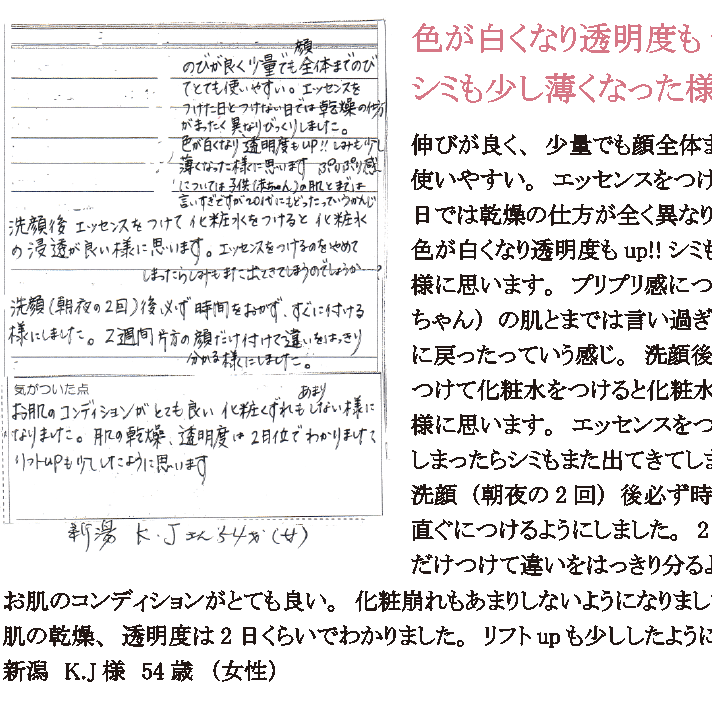 顔
のびが良く少量でも全体までのび
てとても使いやすい。エッセンスを
つけた日とつけない日では乾燥の仕方
がまったく異なりびっくりしました。
色が白くなり透明度もUP!! しみも少し
薄くなった様に思います ぷりぷり感
については子供(赤ちゃん)の肌とまでは
言いすぎですが20代にもどったっていうかんじ
洗顔後 エッセンスをつけて化粧水をつけると化粧水
の浸透が良い様に思います。エッセンスをつけるのをやめて
しまったらしみもまた出てきてしまうのでしょうか…?
洗顔(朝夜の2回)後、必ず時間をおかず、すぐに付ける
様にしました。2週間片方の顔だけ付けて違いをはっきり
分かる様にしました。
気がついた点
あまり
お肌のコンディションがとても良い 化粧くずれもしない様に
なりました。肌の乾燥、透明度は2日位でわかりました
リフトUPも少ししたように思います
新潟 K.Jさん 54才(女)
色が白くなり透明度も
シミも少し薄くなった様
伸びが良く、少量でも顔全体ま
使いやすい。エッセンスをつけ
日では乾燥の仕方が全く異なり
色が白くなり透明度も up!! シミも
様に思います。プリプリ感につ
ちゃん）の肌とまでは言い過ぎ
に戻ったっていう感じ。洗顔後
つけて化粧水をつけると化粧水
様に思います。エッセンスをつ
しまったらシミもまた出てきてしま
洗顔（朝夜の 2 回）後必ず時
直ぐにつけるようにしました。2
だけつけて違いをはっきり分るよ
お肌のコンディションがとても良い。化粧崩れもあまりしないようになりまし
肌の乾燥、透明度は 2 日くらいでわかりました。リフト up も少ししたように
新潟 K.J 様 54 歳 （女性）